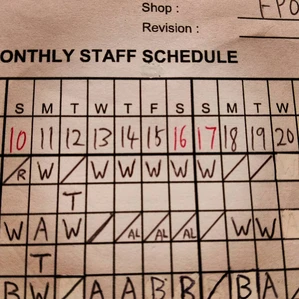 Shop : FPO
Revision :
ONTHLY STAFF SCHEDULE
S M T W T F S S M T W
10 11 12 13 14 15 16 17 18 19 20
R W / W W W W W / /
T
W A W / AL AL AL / W W
T
B W / A A B R / B A /